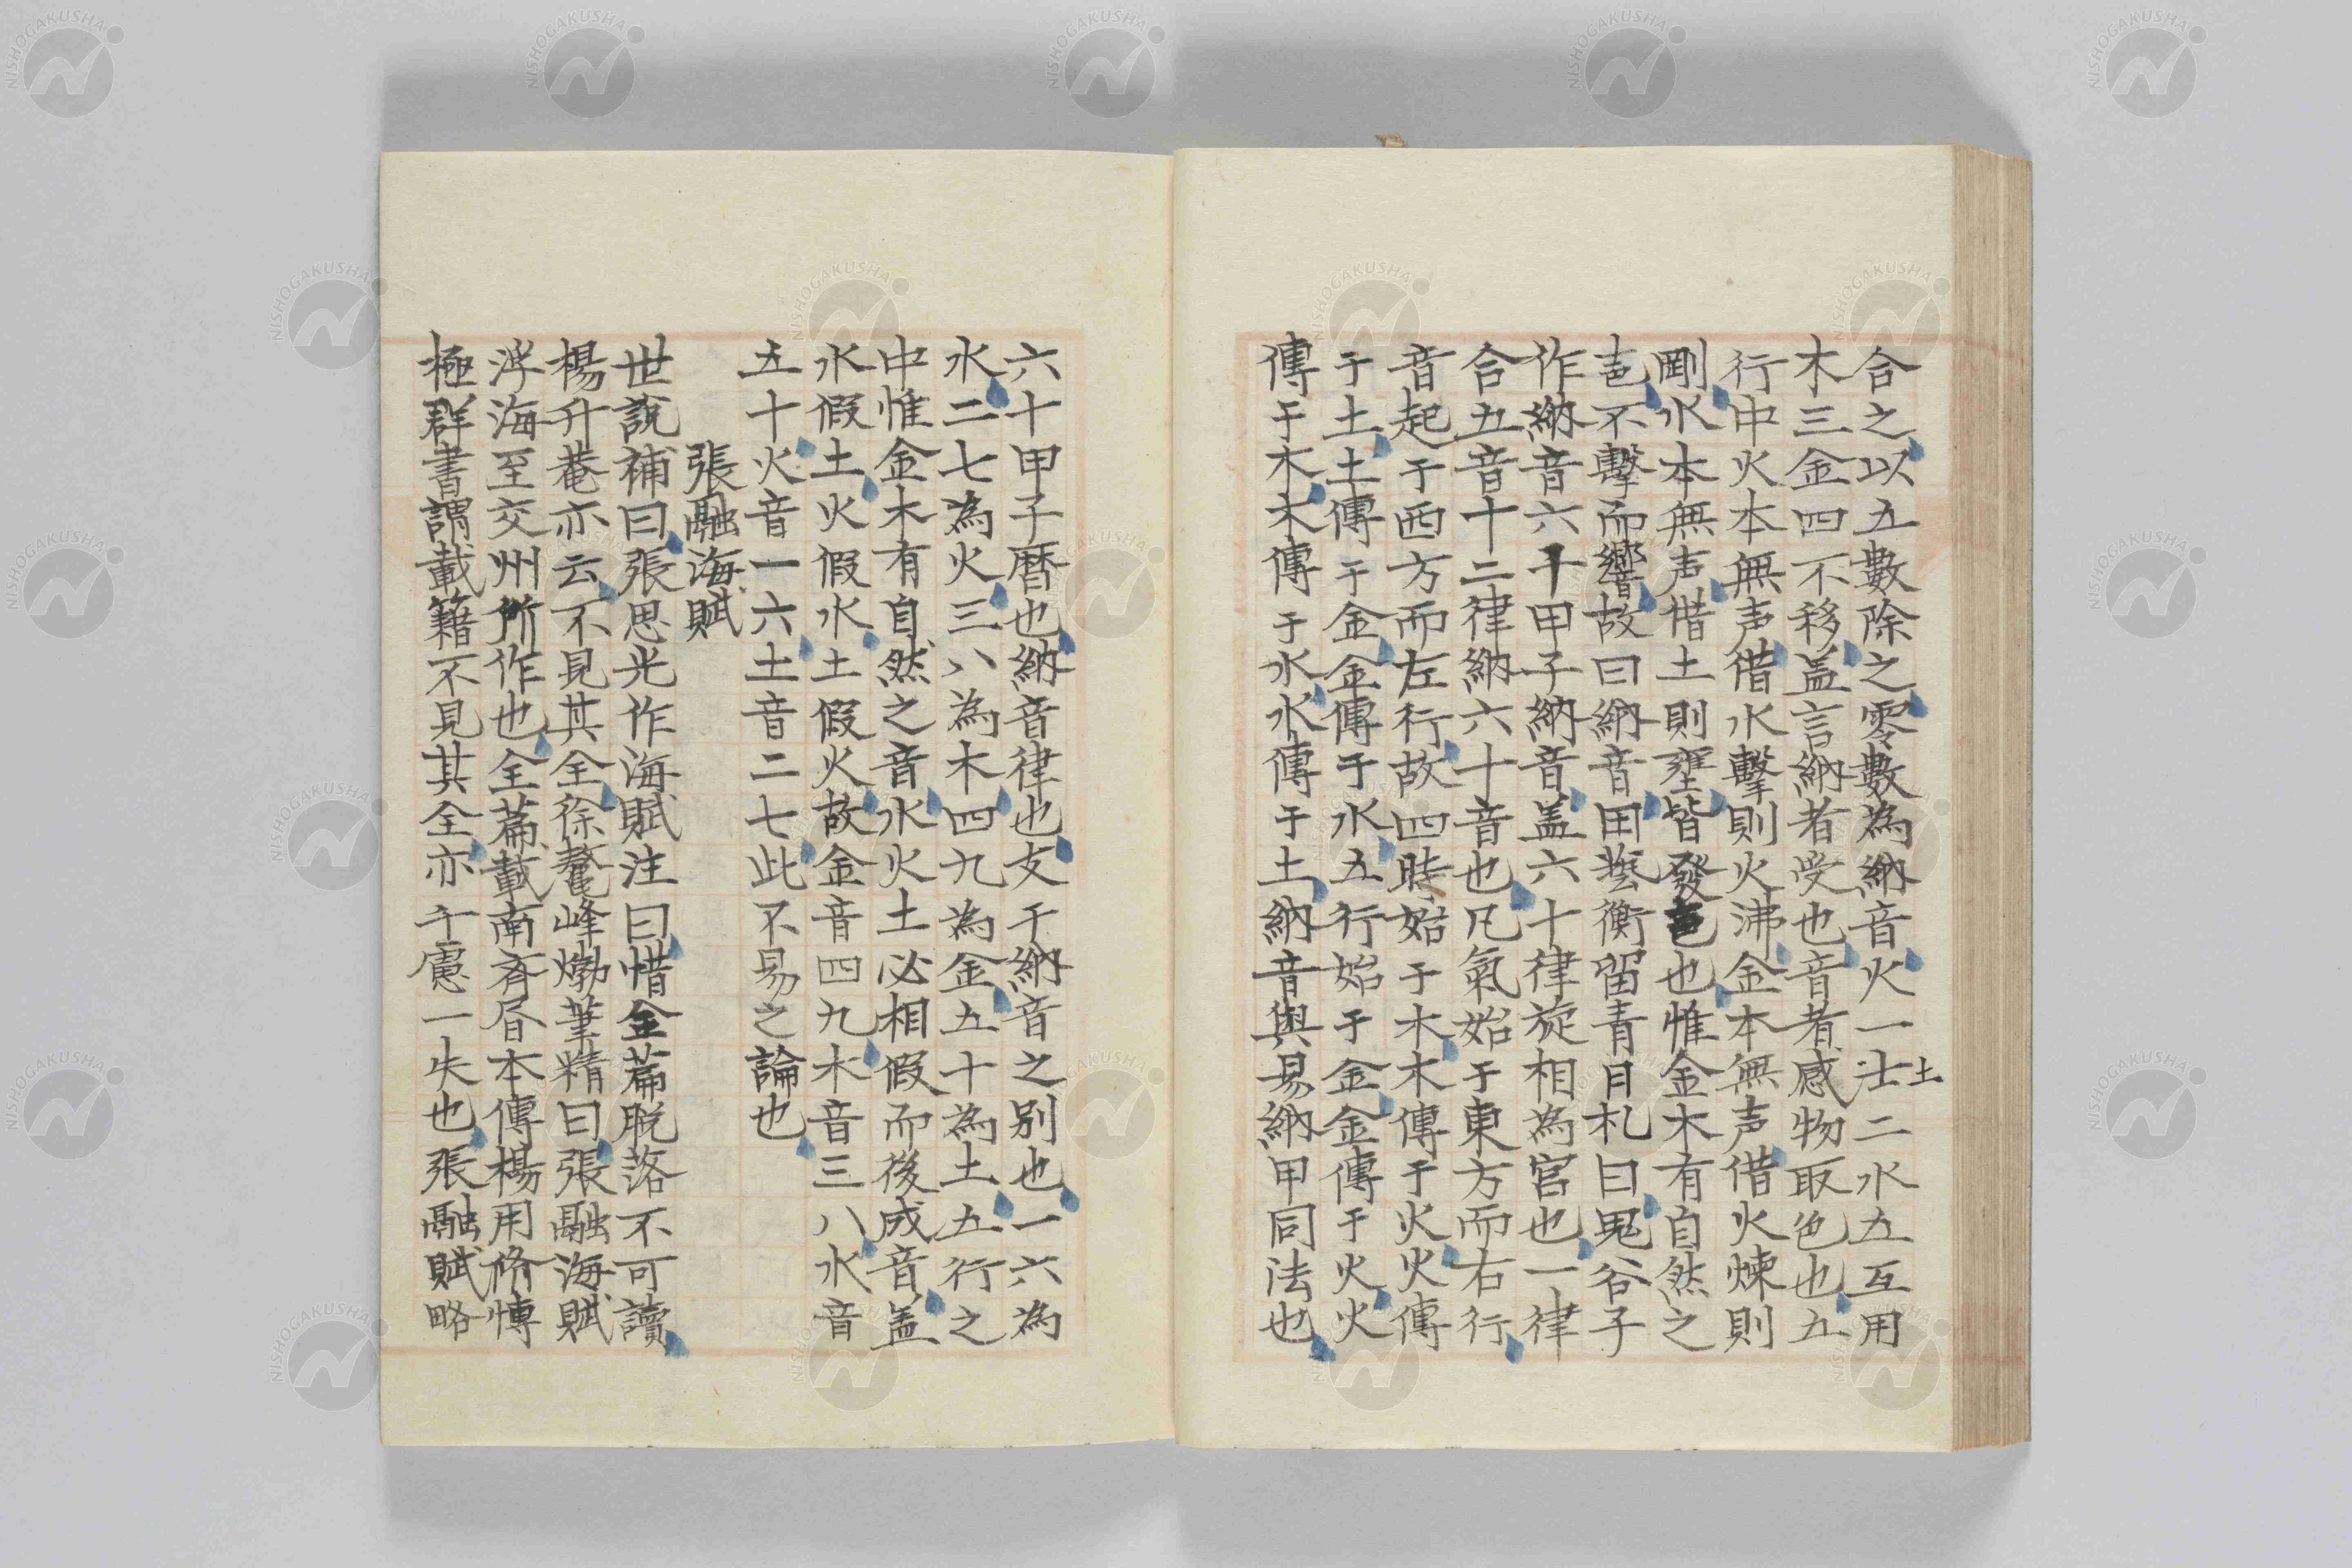 合之以五數除之零數為納音火一汢二水五互用
土
木三金四不移盖言納者受也音者感物取色也五
行中火本無声借水擊則火沸金本無声借火煉則
剛水本無声惜土則壅皆發也惟金木有自然之
不擊而響故曰納音田藝衡留青日札曰鬼谷子
作納音六十甲子納音盖六十律旋相為宮也一律
合五音十二律納六十音也凡氣始于東方而右行
音起于西方而左行故四時始于木木傳于火火傳
于土土傳于金金傳于水五行始于金金傳于火火
傳于木木傳于水水傳于土納音與易納甲同法也
六十甲子暦也納音律也支干納音之别也一六為
水二七為火三八為木四九為金五十為土五行之
中惟金木有自然之音水火土必相假而後成音盖
水假土火假水土假火故金音四九木音三八水音
五十火音一六土音二七此不易之論也
張融海賦
世説補曰張思光作海賦注曰惜全篇脱落不可讀
楊升菴亦云不見其全徐𩕄峰㷀筆精曰張融海賦
浮海至交州所作也全篇載南斉昏本傳楊用脩慱
極群書謂載籍不見其全亦千慮一失也張融賦略
NISHOGAKUSHA